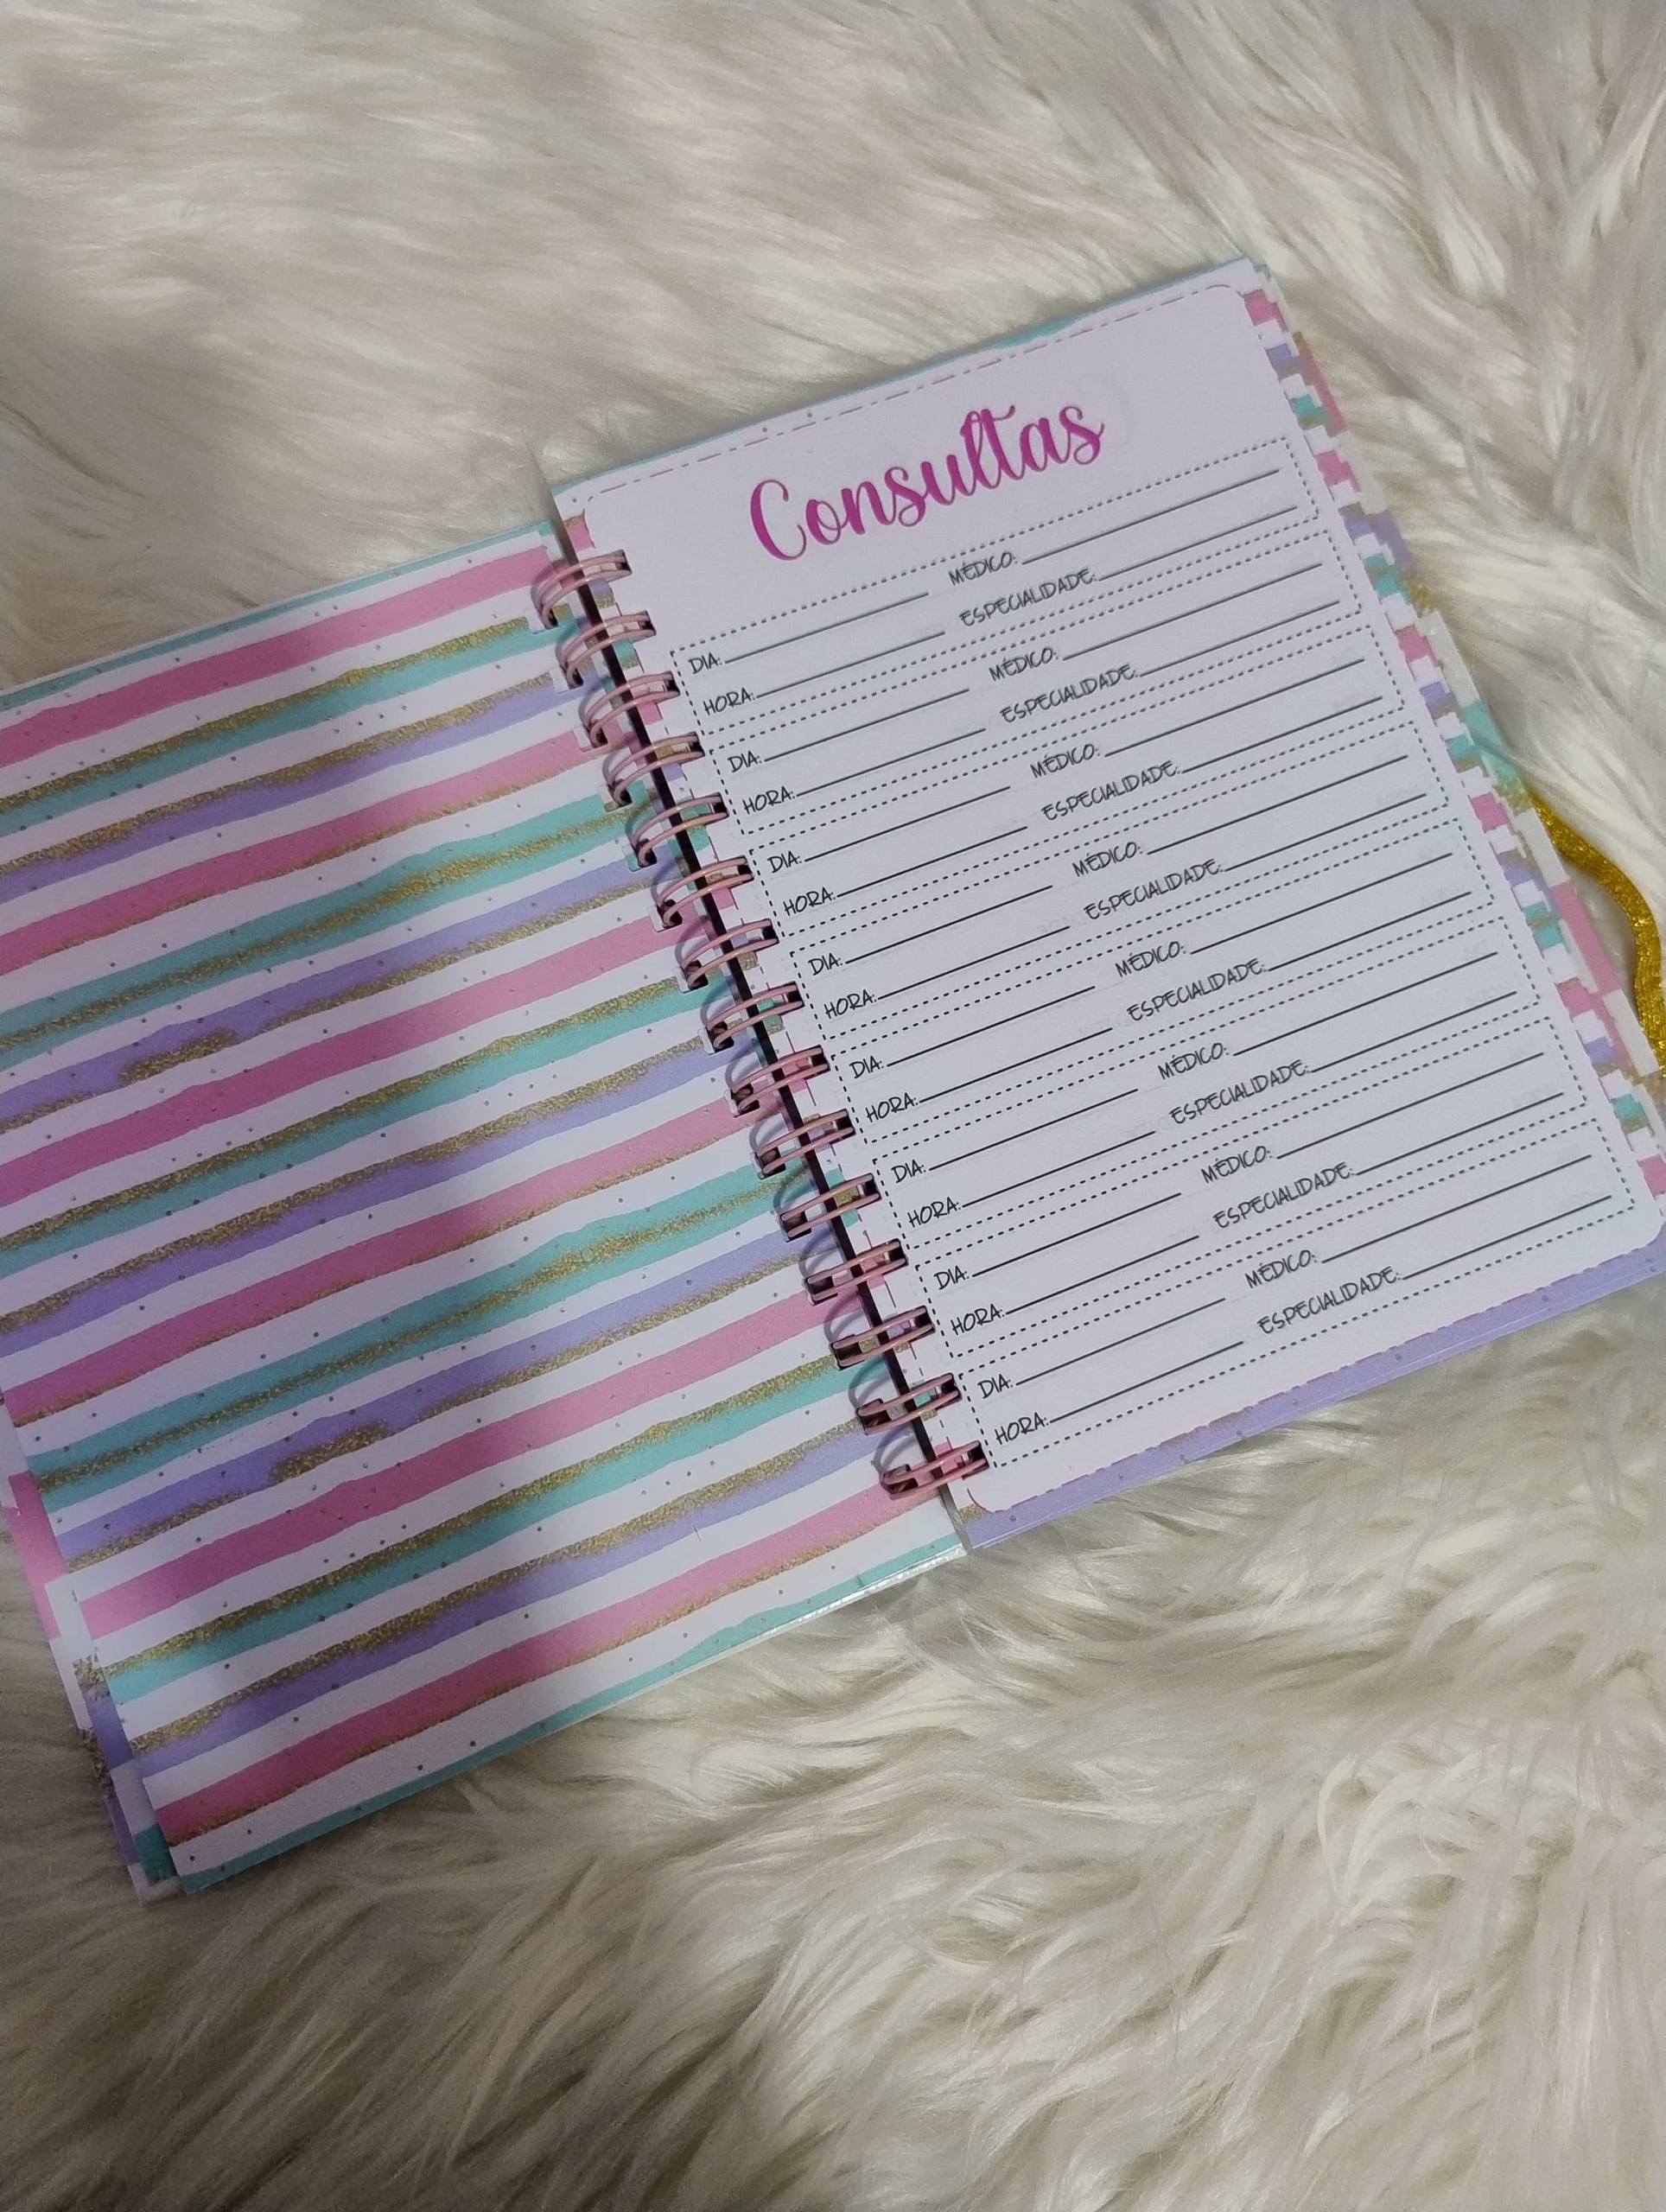 Consultas
DIA: MÉDICO:
HORA: ESPECIALIDADE:
DIA: MÉDICO:
HORA: ESPECIALIDADE:
DIA: MÉDICO:
HORA: ESPECIALIDADE:
DIA: MÉDICO:
HORA: ESPECIALIDADE:
DIA: MÉDICO:
HORA: ESPECIALIDADE:
DIA: MÉDICO:
HORA: ESPECIALIDADE:
DIA: MÉDICO:
HORA: ESPECIALIDADE:
DIA: MÉDICO:
HORA: ESPECIALIDADE: